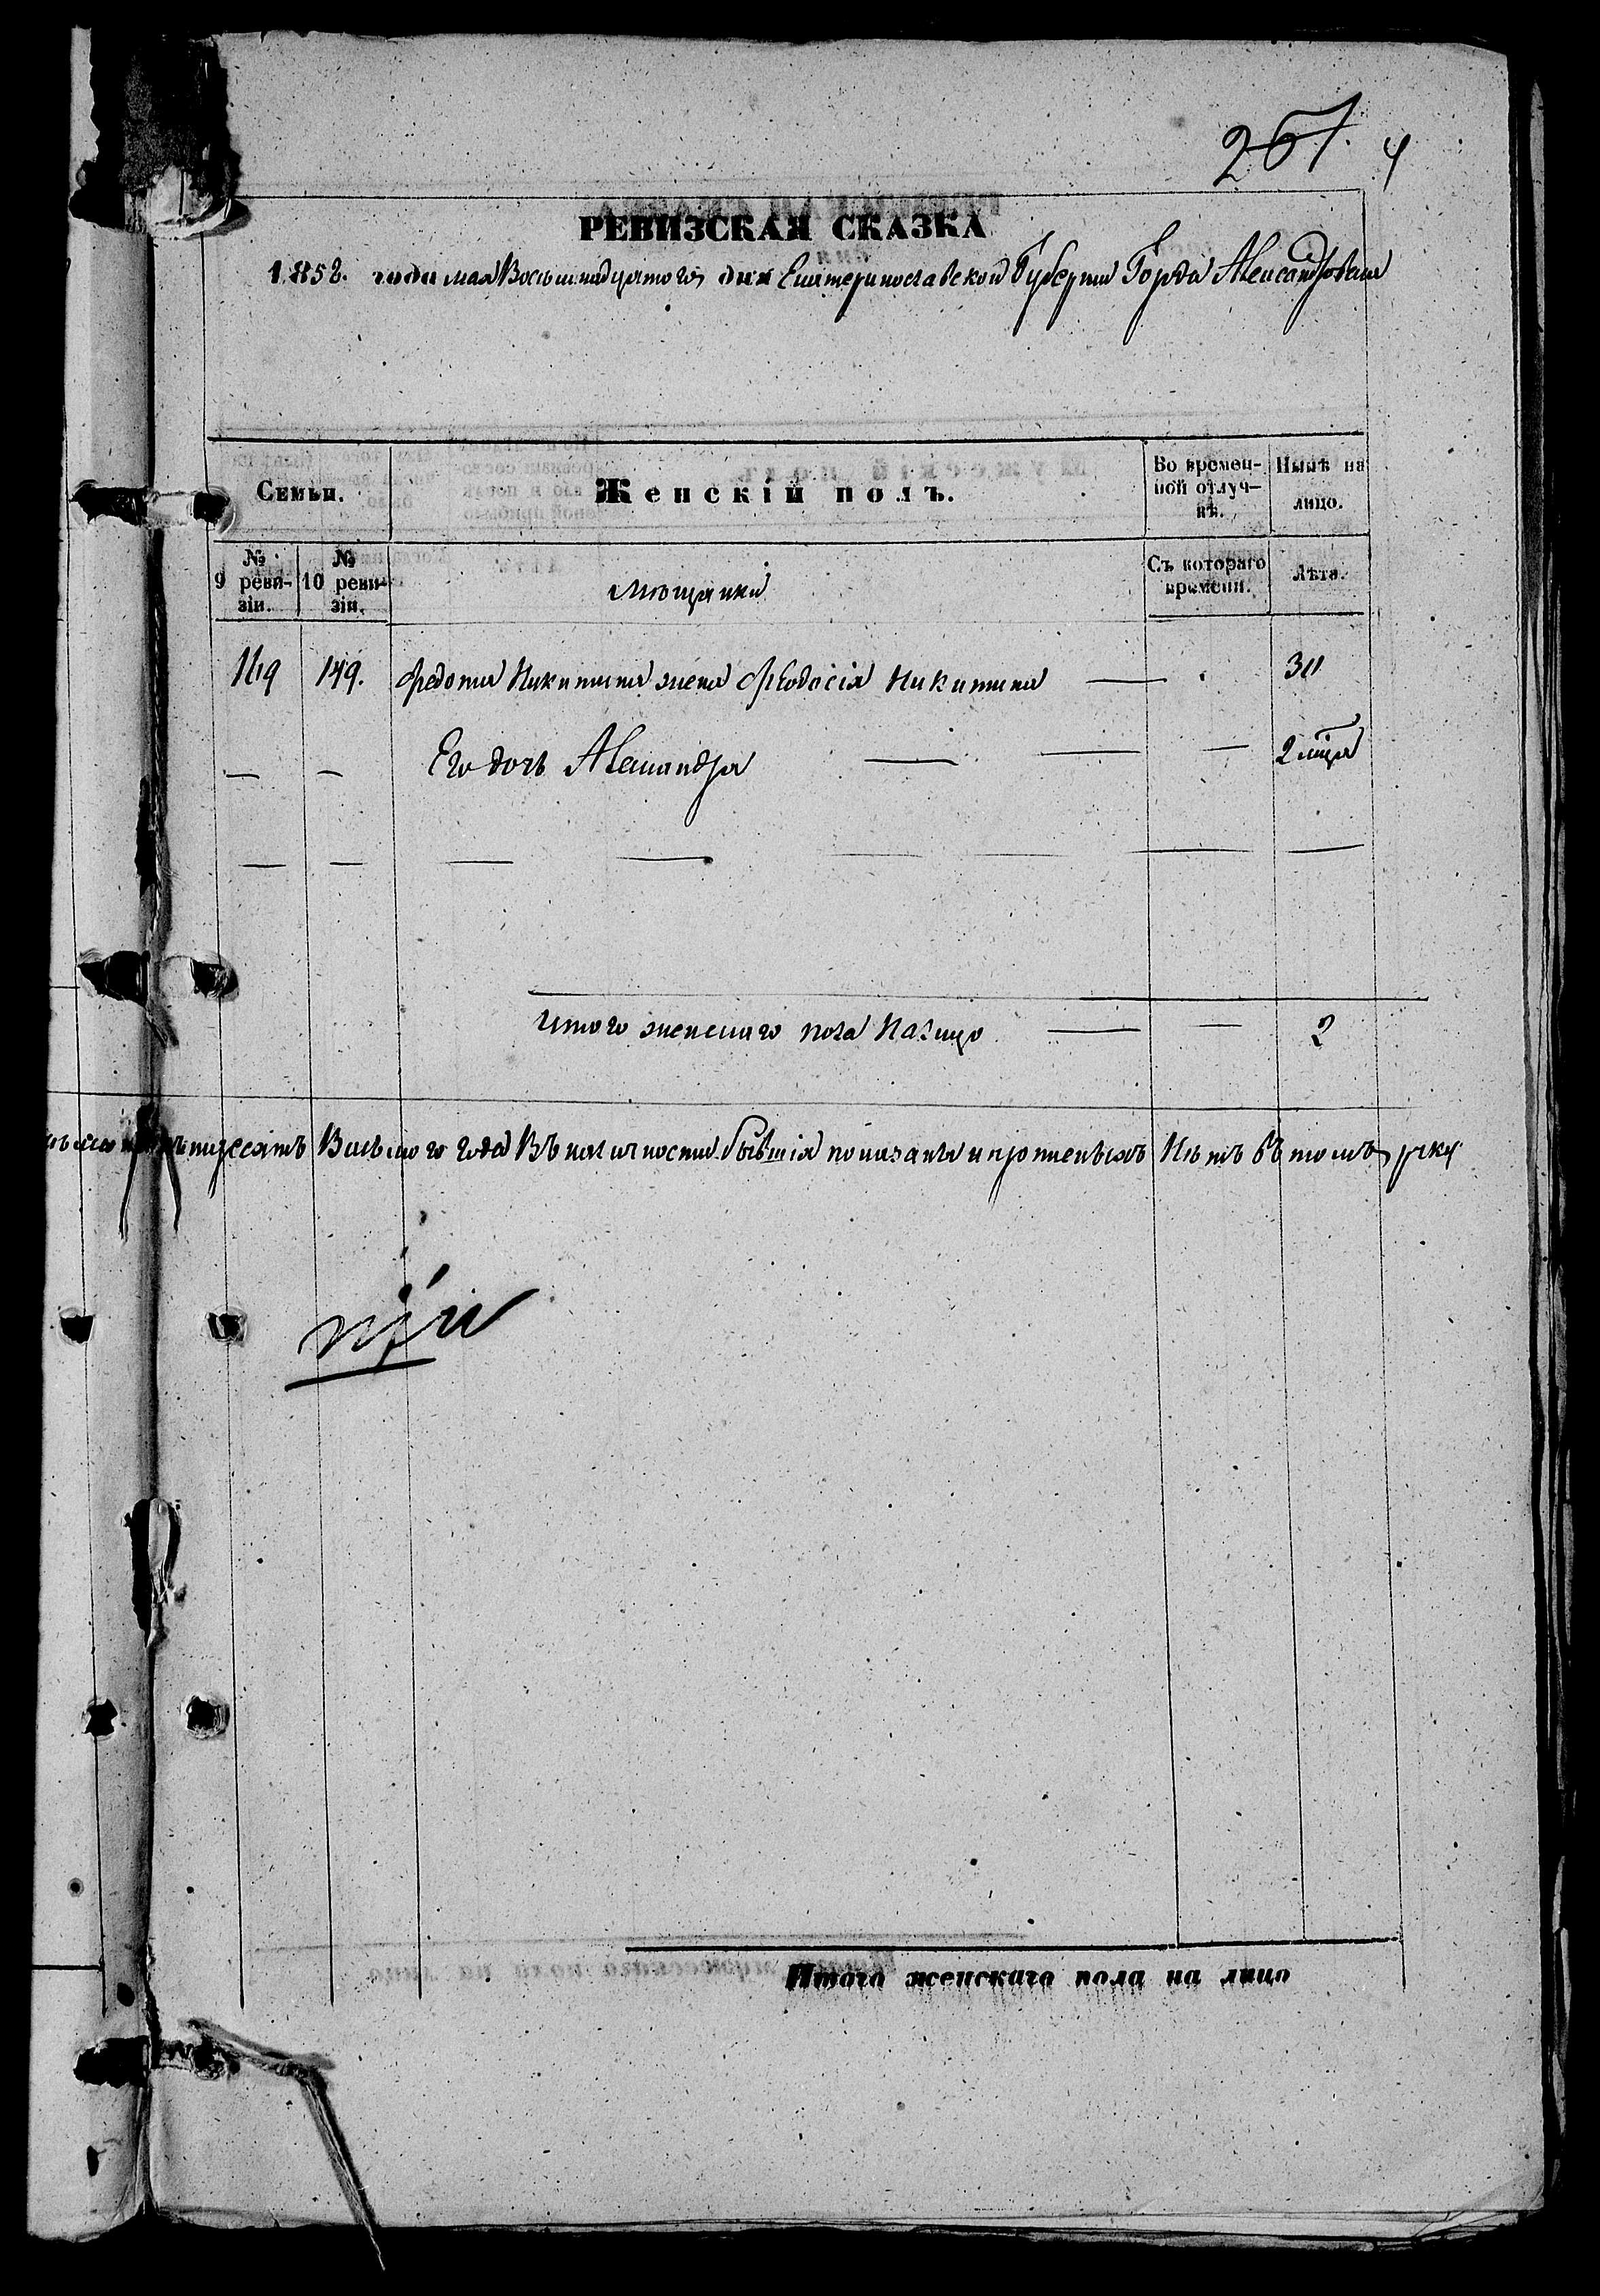 267. 4
РЕВИЗСКАЯ СКАЗКА
1858. года мая Восьмнадцатого дня Екатеринославской Губернии Города Александровска
Семьи.
Женскій полъ.
Во времен-
ной отлуч-
кѣ.
Нынѣ на
лицо.
№
9 реви-
зіи.
№
10 реви-
зіи.
мещанки
Съ котораго
времени.
Лѣта.
149. Федота Никитина жена Феодосія Никитина —
Его дочь Александра — — — 2 мца
— — — — — — — —
Итого женскаго пола налицо — — 2
Восьмого года Въ наличности бывшія показаны и пропненыхъ Нѣтъ въ томъ руку
Итого женскаго пола на лицо